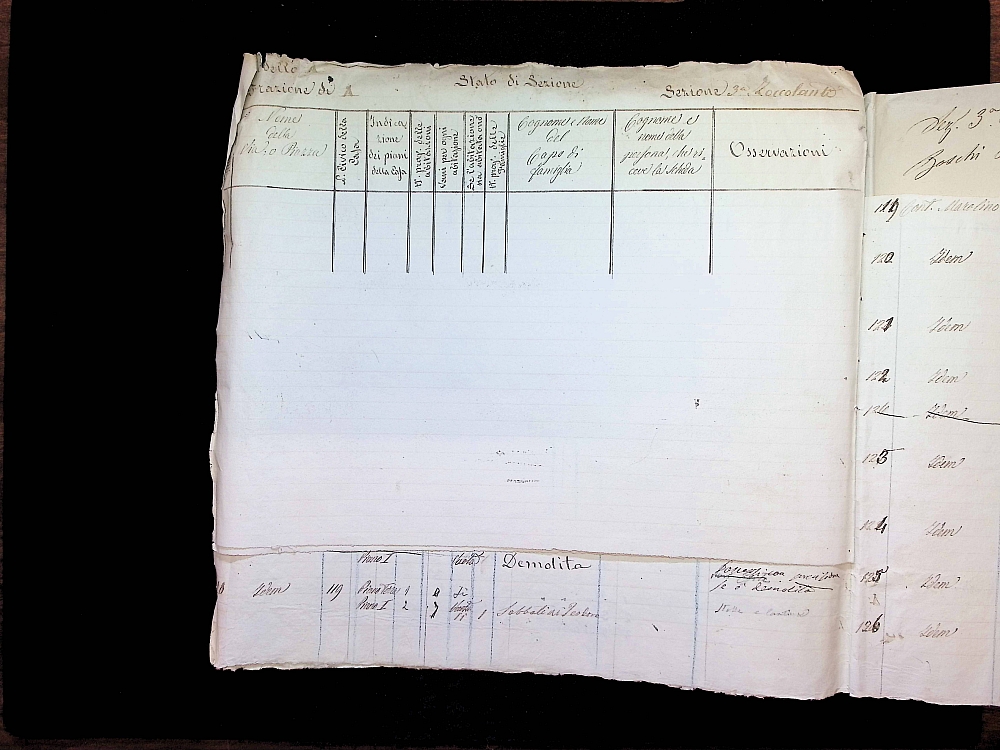 dello A
frazione di A
Stato di Sezione
Sezione 3ª Zoccolanti
Nome della Via, o Piazza
N. Civico della Casa
Indicazione dei piani della Casa
N. prog. delle abitazioni
Vani per ogni abitazione
Se l'abitazione sia abitata o nò
N. prog. delle Famiglie
Cognome e Nome del Capo di famiglia
Cognome e nome della persona, che riceve la scheda
Osservazioni
Piano I Vuota Demolita
Idem 119 Piano Terr. 1 si
se è demolita
Piano I 2 7 1 Sabbatini
Stalla e cantina
Sez. 3ª
Boschi
119 Cont. Marolino
120 Idem
121 Idem
122 Idem
Idem
123 Idem
124 Idem
125 Idem
126 Idem